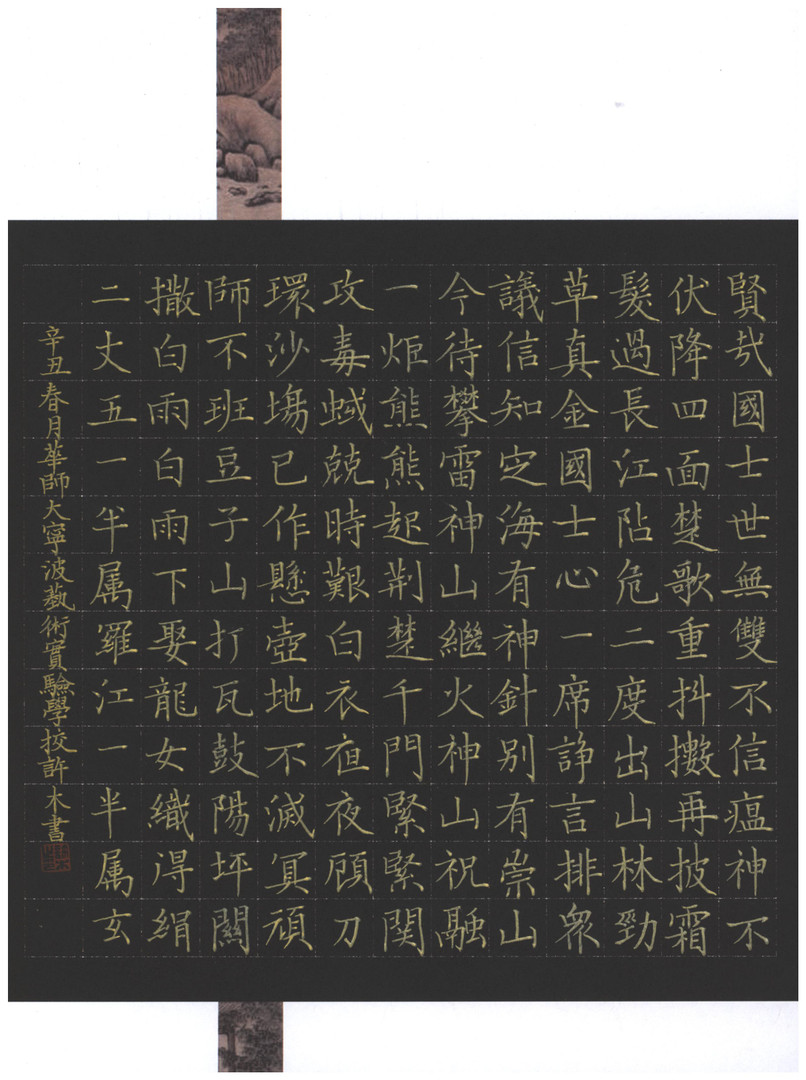 賢哉國士世無雙不信瘟神不
伏降四面楚歌重抖擻再披霜
髮過長江阽危二度出山林勁
草真金國士心一席諍言排眾
議信知定海有神針別有崇山
今待攀雷神山繼火神山祝融
一炬熊熊起荆楚千門緊緊関
攻毒蜮兢時艱白衣夜顧刀
環沙塲已作懸壺地不滅冥頑
師不班豆子山打瓦鼓陽坪關
撒白雨白雨下娶龍女織得絹
二丈五一半属羅江一半属玄
辛丑春月華師大寧波藝術實驗學挍許木書